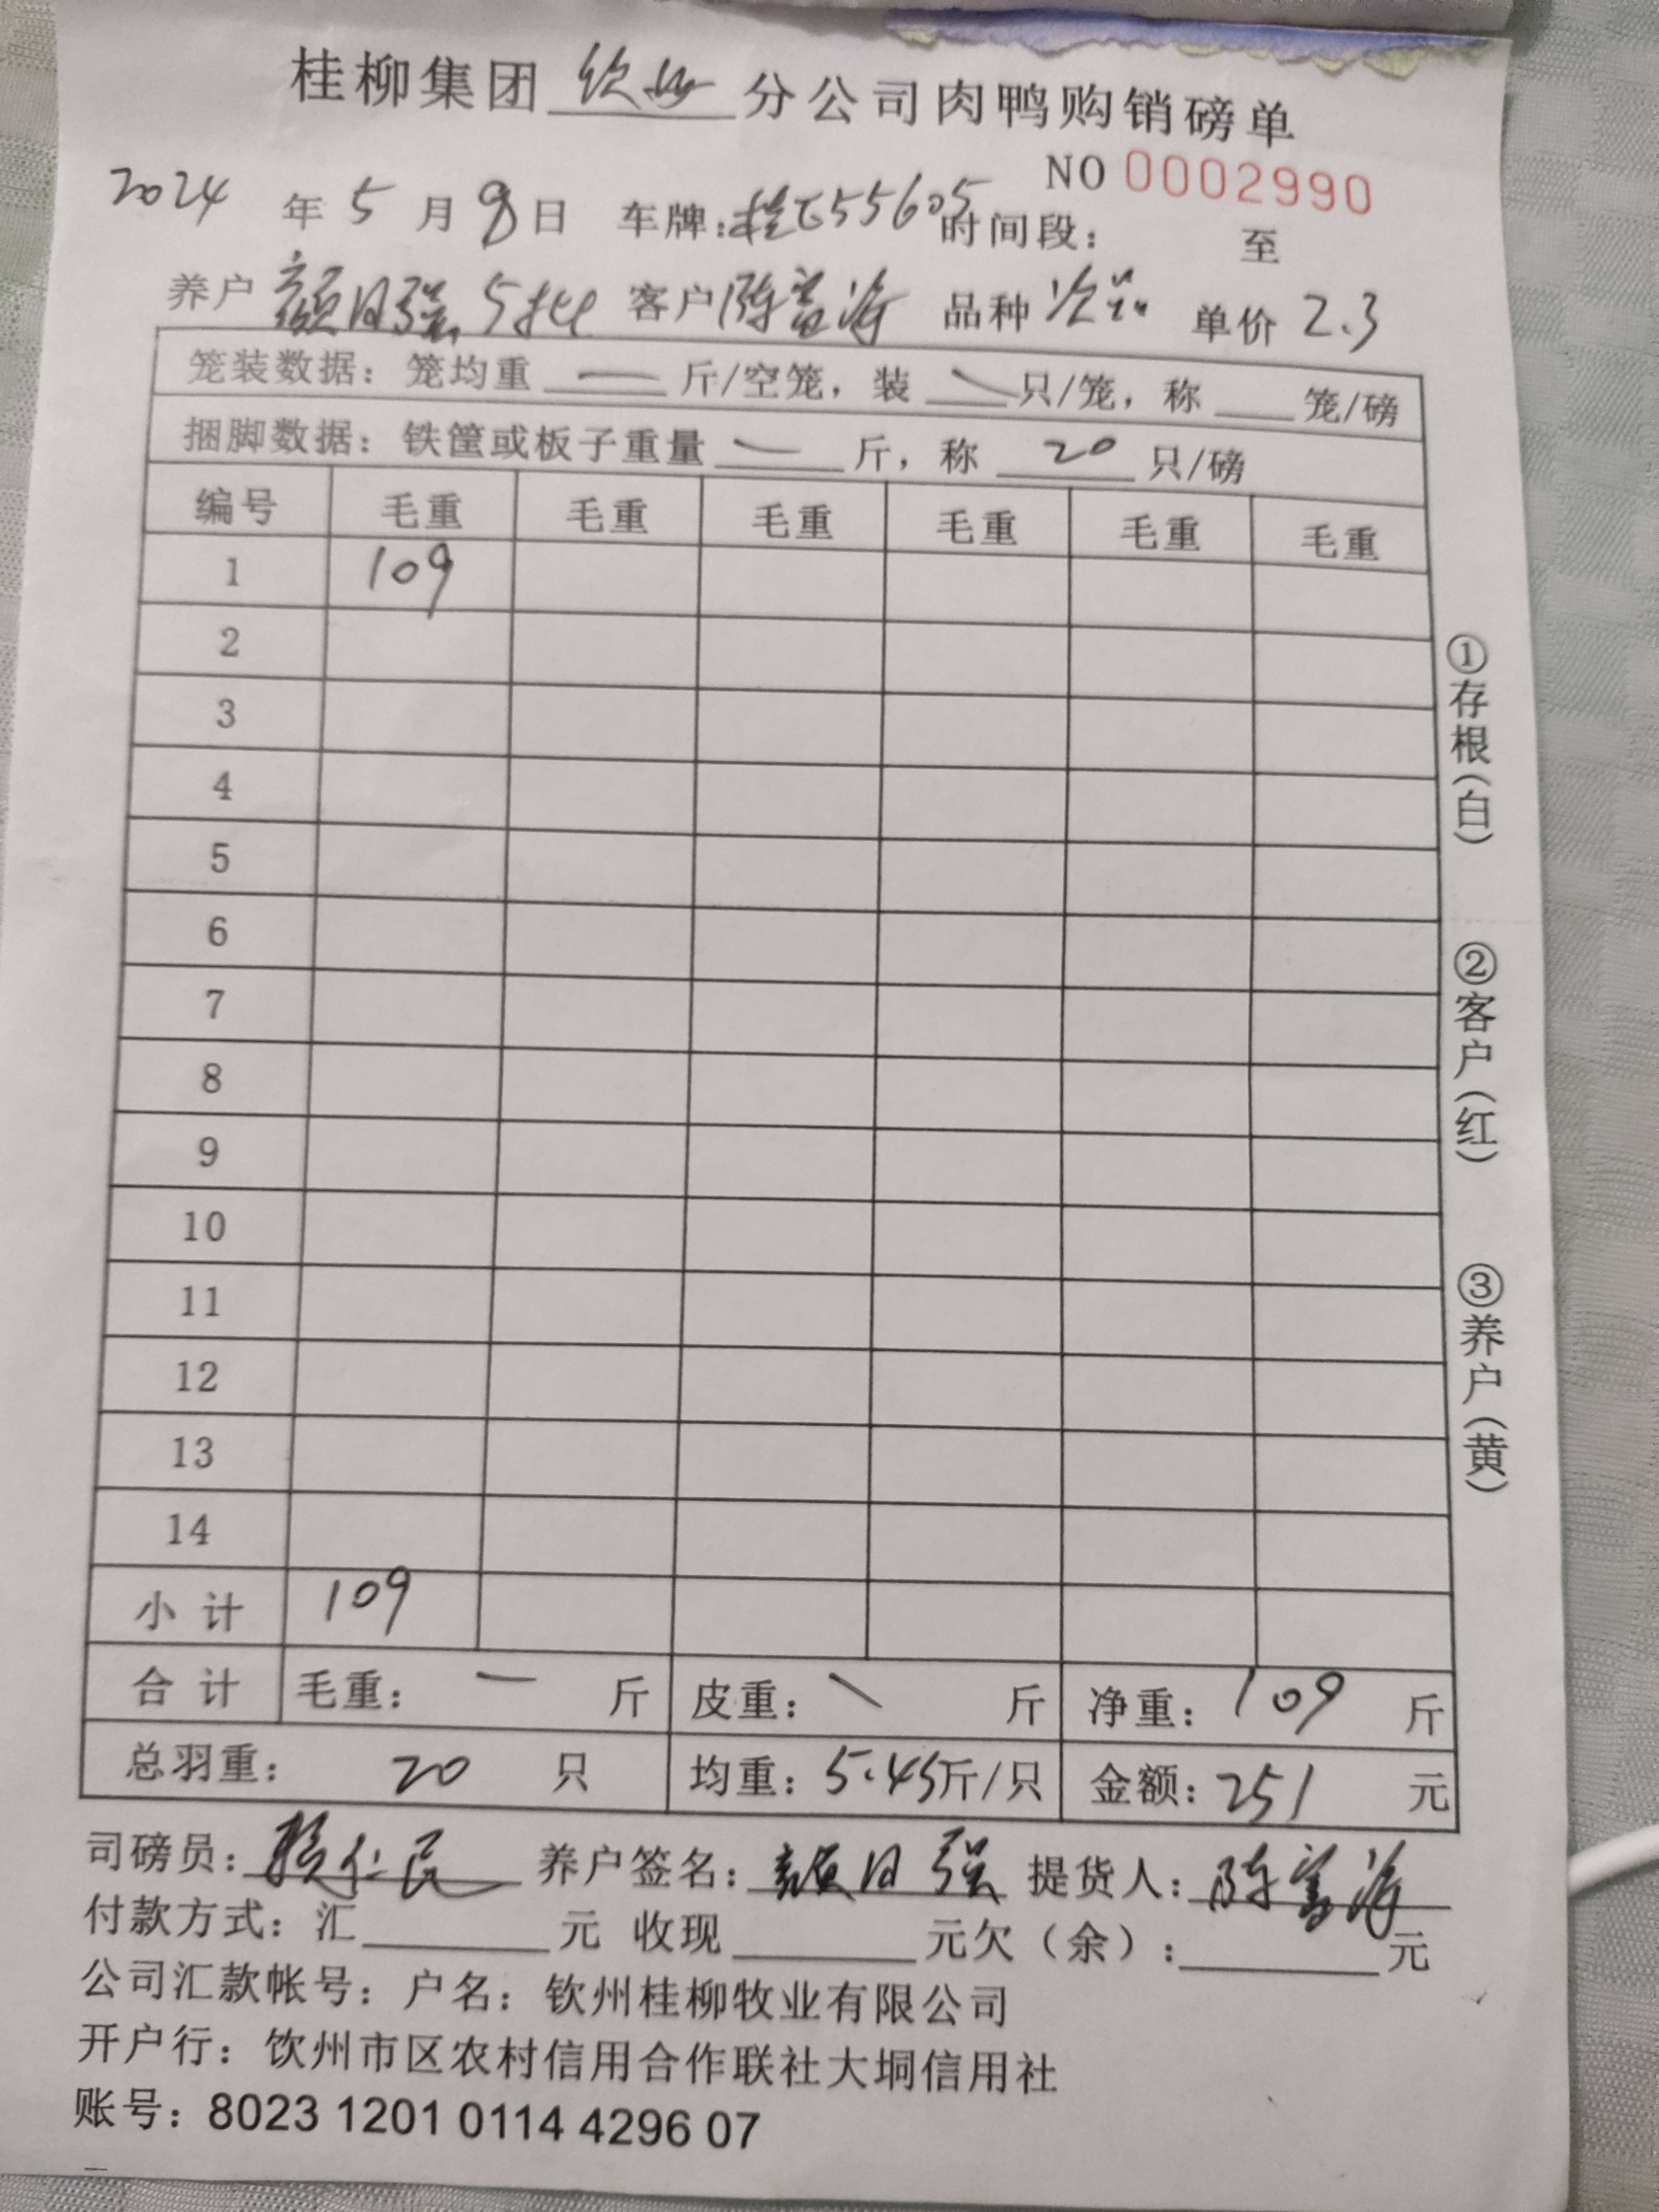 桂柳集团钦州分公司肉鸭购销磅单
NO 0002990
2024年5月8日 车牌:桂E55605 时间段: 至
养户 颜日强 5批 客户 陈富海 品种 单价 2.3
笼装数据:笼均重 — 斤/空笼,装 — 只/笼,称 笼/磅
捆脚数据:铁筐或板子重量 — 斤,称 20 只/磅
编号 毛重 毛重 毛重 毛重 毛重 毛重
1 109
2
3
4
5
6
7
8
9
10
11
12
13
14
小计 109
合计 毛重: — 斤 皮重: \ 斤 净重: 109 斤
总羽重: 20 只 均重: 5.45斤/只 金额: 251 元
司磅员: 仁民 养户签名: 颜日强 提货人: 陈富海
付款方式: 汇 元 收现 元欠(余): 元
公司汇款帐号: 户名: 钦州桂柳牧业有限公司
开户行: 饮州市区农村信用合作联社大垌信用社
账号: 8023 1201 0114 4296 07
①存根(白)
②客户(红)
③养户(黄)